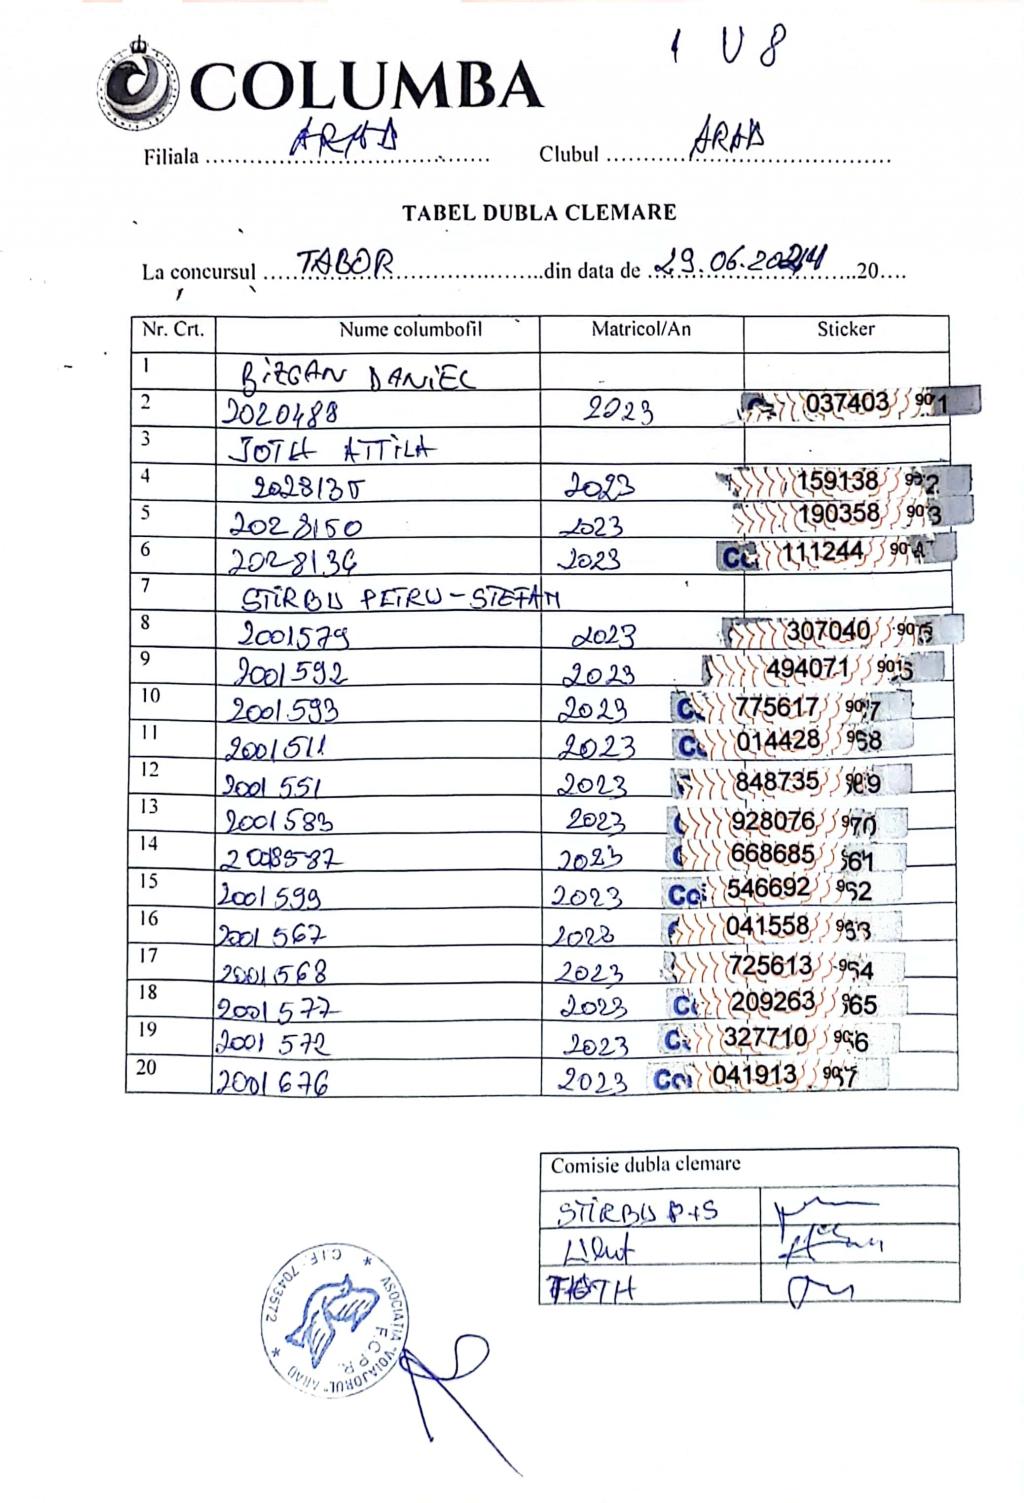 1 V 8
COLUMBA
Filiala ARAD Clubul ARAD
TABEL DUBLA CLEMARE
La concursul TABOR din data de 29.06.2024 20....
Nr. Crt. Nume columbofil Matricol/An Sticker
1 BIZGAN DANIEL
2 2020488 2023 037403 901
3 TOTH ATTILA
4 2028135 2023 159138 902
5 2028150 2023 190358 903
6 2028136 2023 CC 111244 904
7 STIRBU PETRU-STEFAN
8 2001579 2023 307040 905
9 2001592 2023 494071
10 2001593 2023 775617 907
11 2001511 2023 014428
12 2001551 2023 848735
13 2001583 2023 928076
14 2023 668685
15 2001599 2023 546692
16 2001567 2023 041558
17 2001568 2023 725613
18 2001577 2023 209263
19 2001572 2023 327710
20 2001676 2023 041913
Comisie dubla clemare
STIRBU P+S
TOTH
ASOCIATIA "VOIAJORUL" ARAD * C.I.F. 7043572 *
F.C.P.R.